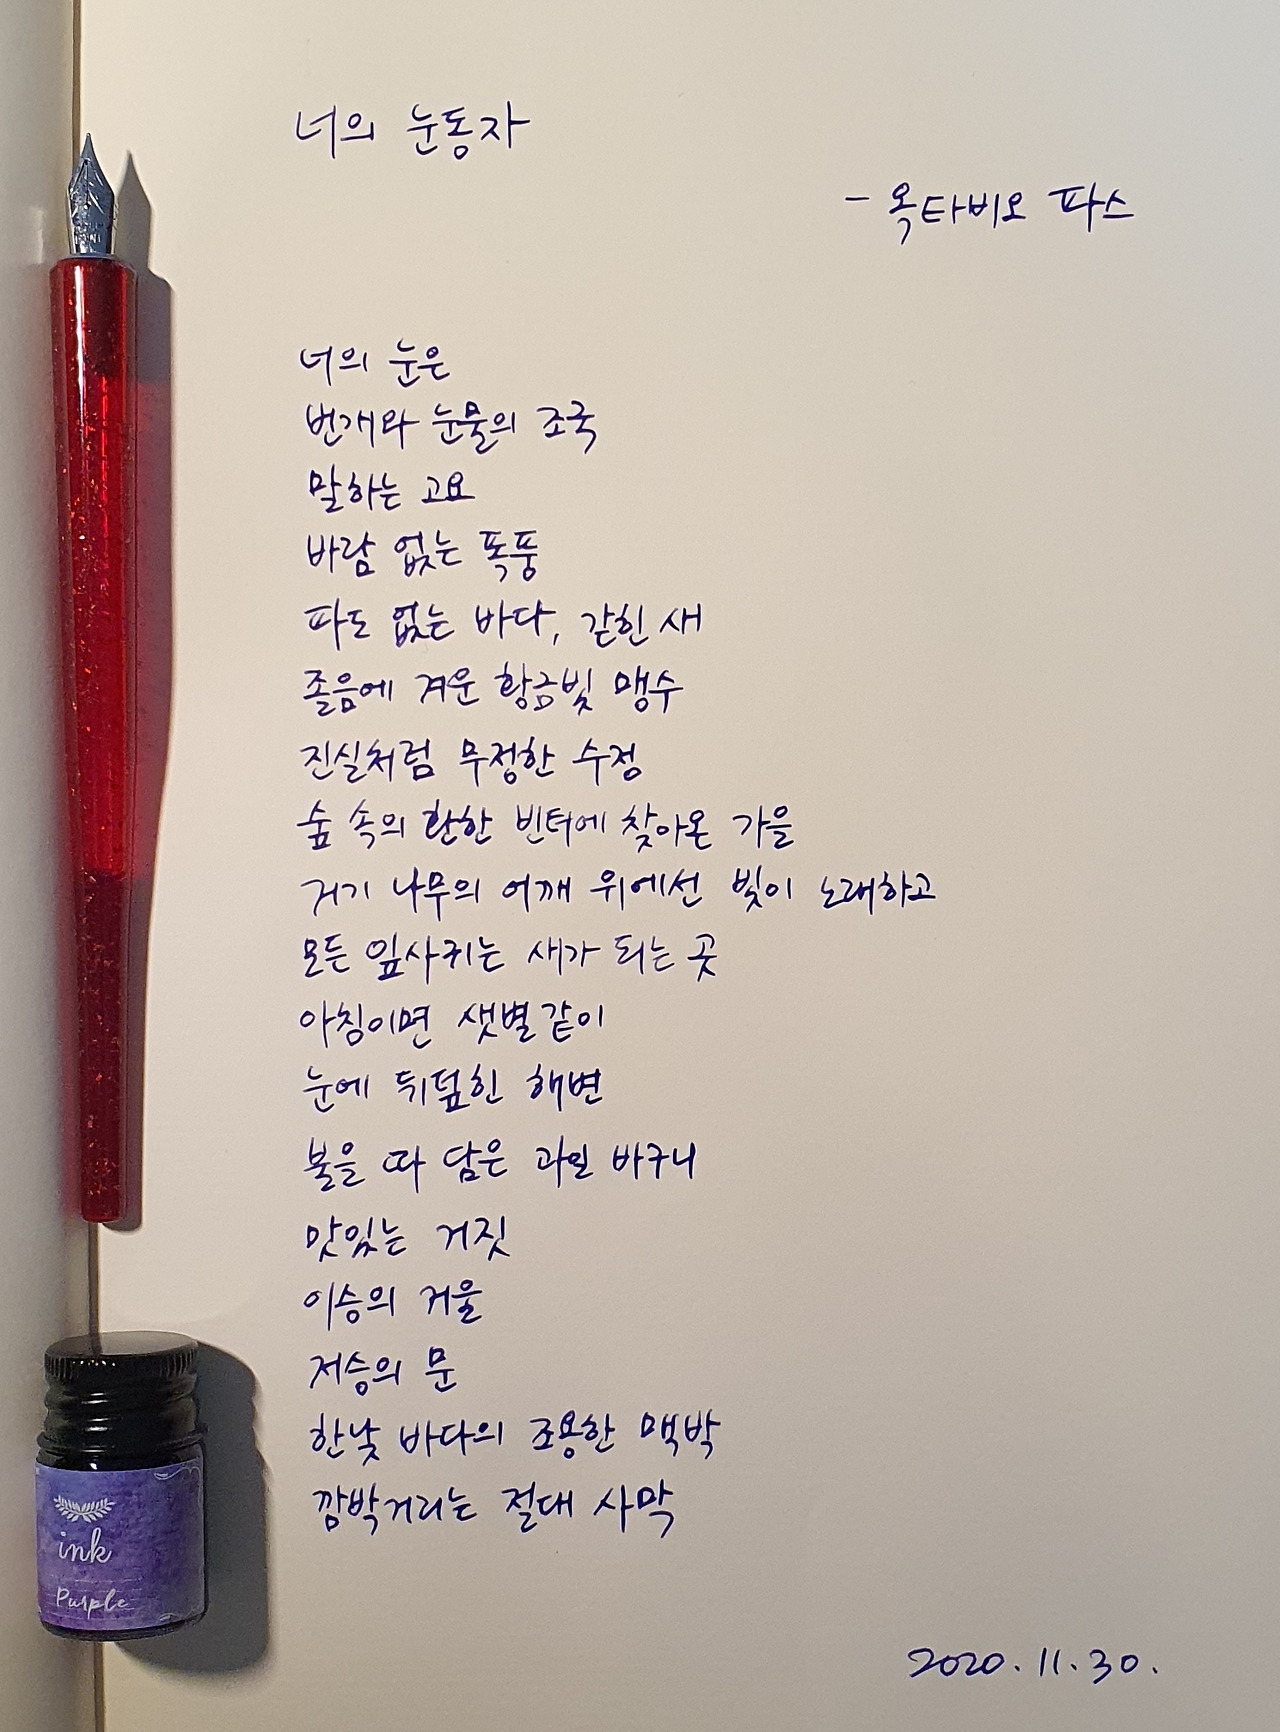 너의 눈동자
- 옥타비오 파스
너의 눈은
번개와 눈물의 조국
말하는 고요
바람 없는 폭풍
파도 없는 바다, 갇힌 새
졸음에 겨운 황금빛 맹수
진실처럼 무정한 수정
숲 속의 환한 빈터에 찾아온 가을
거기 나무의 어깨 위에선 빛이 노래하고
모든 잎사귀는 새가 되는 곳
아침이면 샛별같이
눈에 뒤덮힌 해변
불을 따 담은 과일 바구니
맛있는 거짓
이승의 거울
저승의 문
한낮 바다의 조용한 맥박
깜박거리는 절대 사막
2020. 11. 30.
ink
Purple